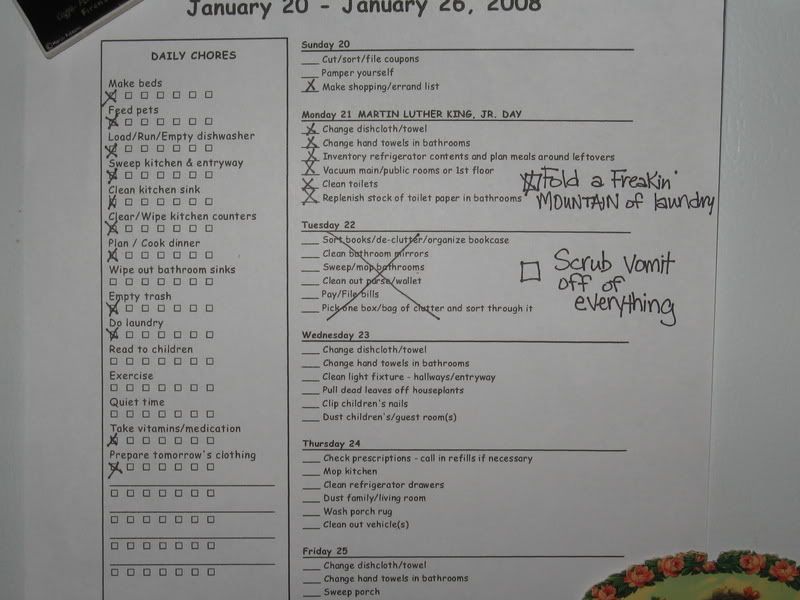 January 20 - January 26, 2008
DAILY CHORES
Make beds
Feed pets
Load/Run/Empty dishwasher
Sweep kitchen & entryway
Clean kitchen sink
Clear/Wipe kitchen counters
Plan / Cook dinner
Wipe out bathroom sinks
Empty trash
Do laundry
Read to children
Exercise
Quiet time
Take vitamins/medication
Prepare tomorrow's clothing
Sunday 20
Cut/sort/file coupons
Pamper yourself
Make shopping/errand list
Monday 21 MARTIN LUTHER KING, JR. DAY
Change dishcloth/towel
Change hand towels in bathrooms
Inventory refrigerator contents and plan meals around leftovers
Vacuum main/public rooms or 1st floor
Clean toilets
Replenish stock of toilet paper in bathrooms
Fold a Freakin'
MOUNTAIN of laundry
Tuesday 22
Sort books/de-clutter/organize bookcase
Clean bathroom mirrors
Sweep/mop bathrooms
Clean out purse/wallet
Pay/File bills
Pick one box/bag of clutter and sort through it
Scrub Vomit
off of
everything
Wednesday 23
Change dishcloth/towel
Change hand towels in bathrooms
Clean light fixture - hallways/entryway
Pull dead leaves off houseplants
Clip children's nails
Dust children's/guest room(s)
Thursday 24
Check prescriptions - call in refills if necessary
Mop kitchen
Clean refrigerator drawers
Dust family/living room
Wash porch rug
Clean out vehicle(s)
Friday 25
Change dishcloth/towel
Change hand towels in bathrooms
Sweep porch